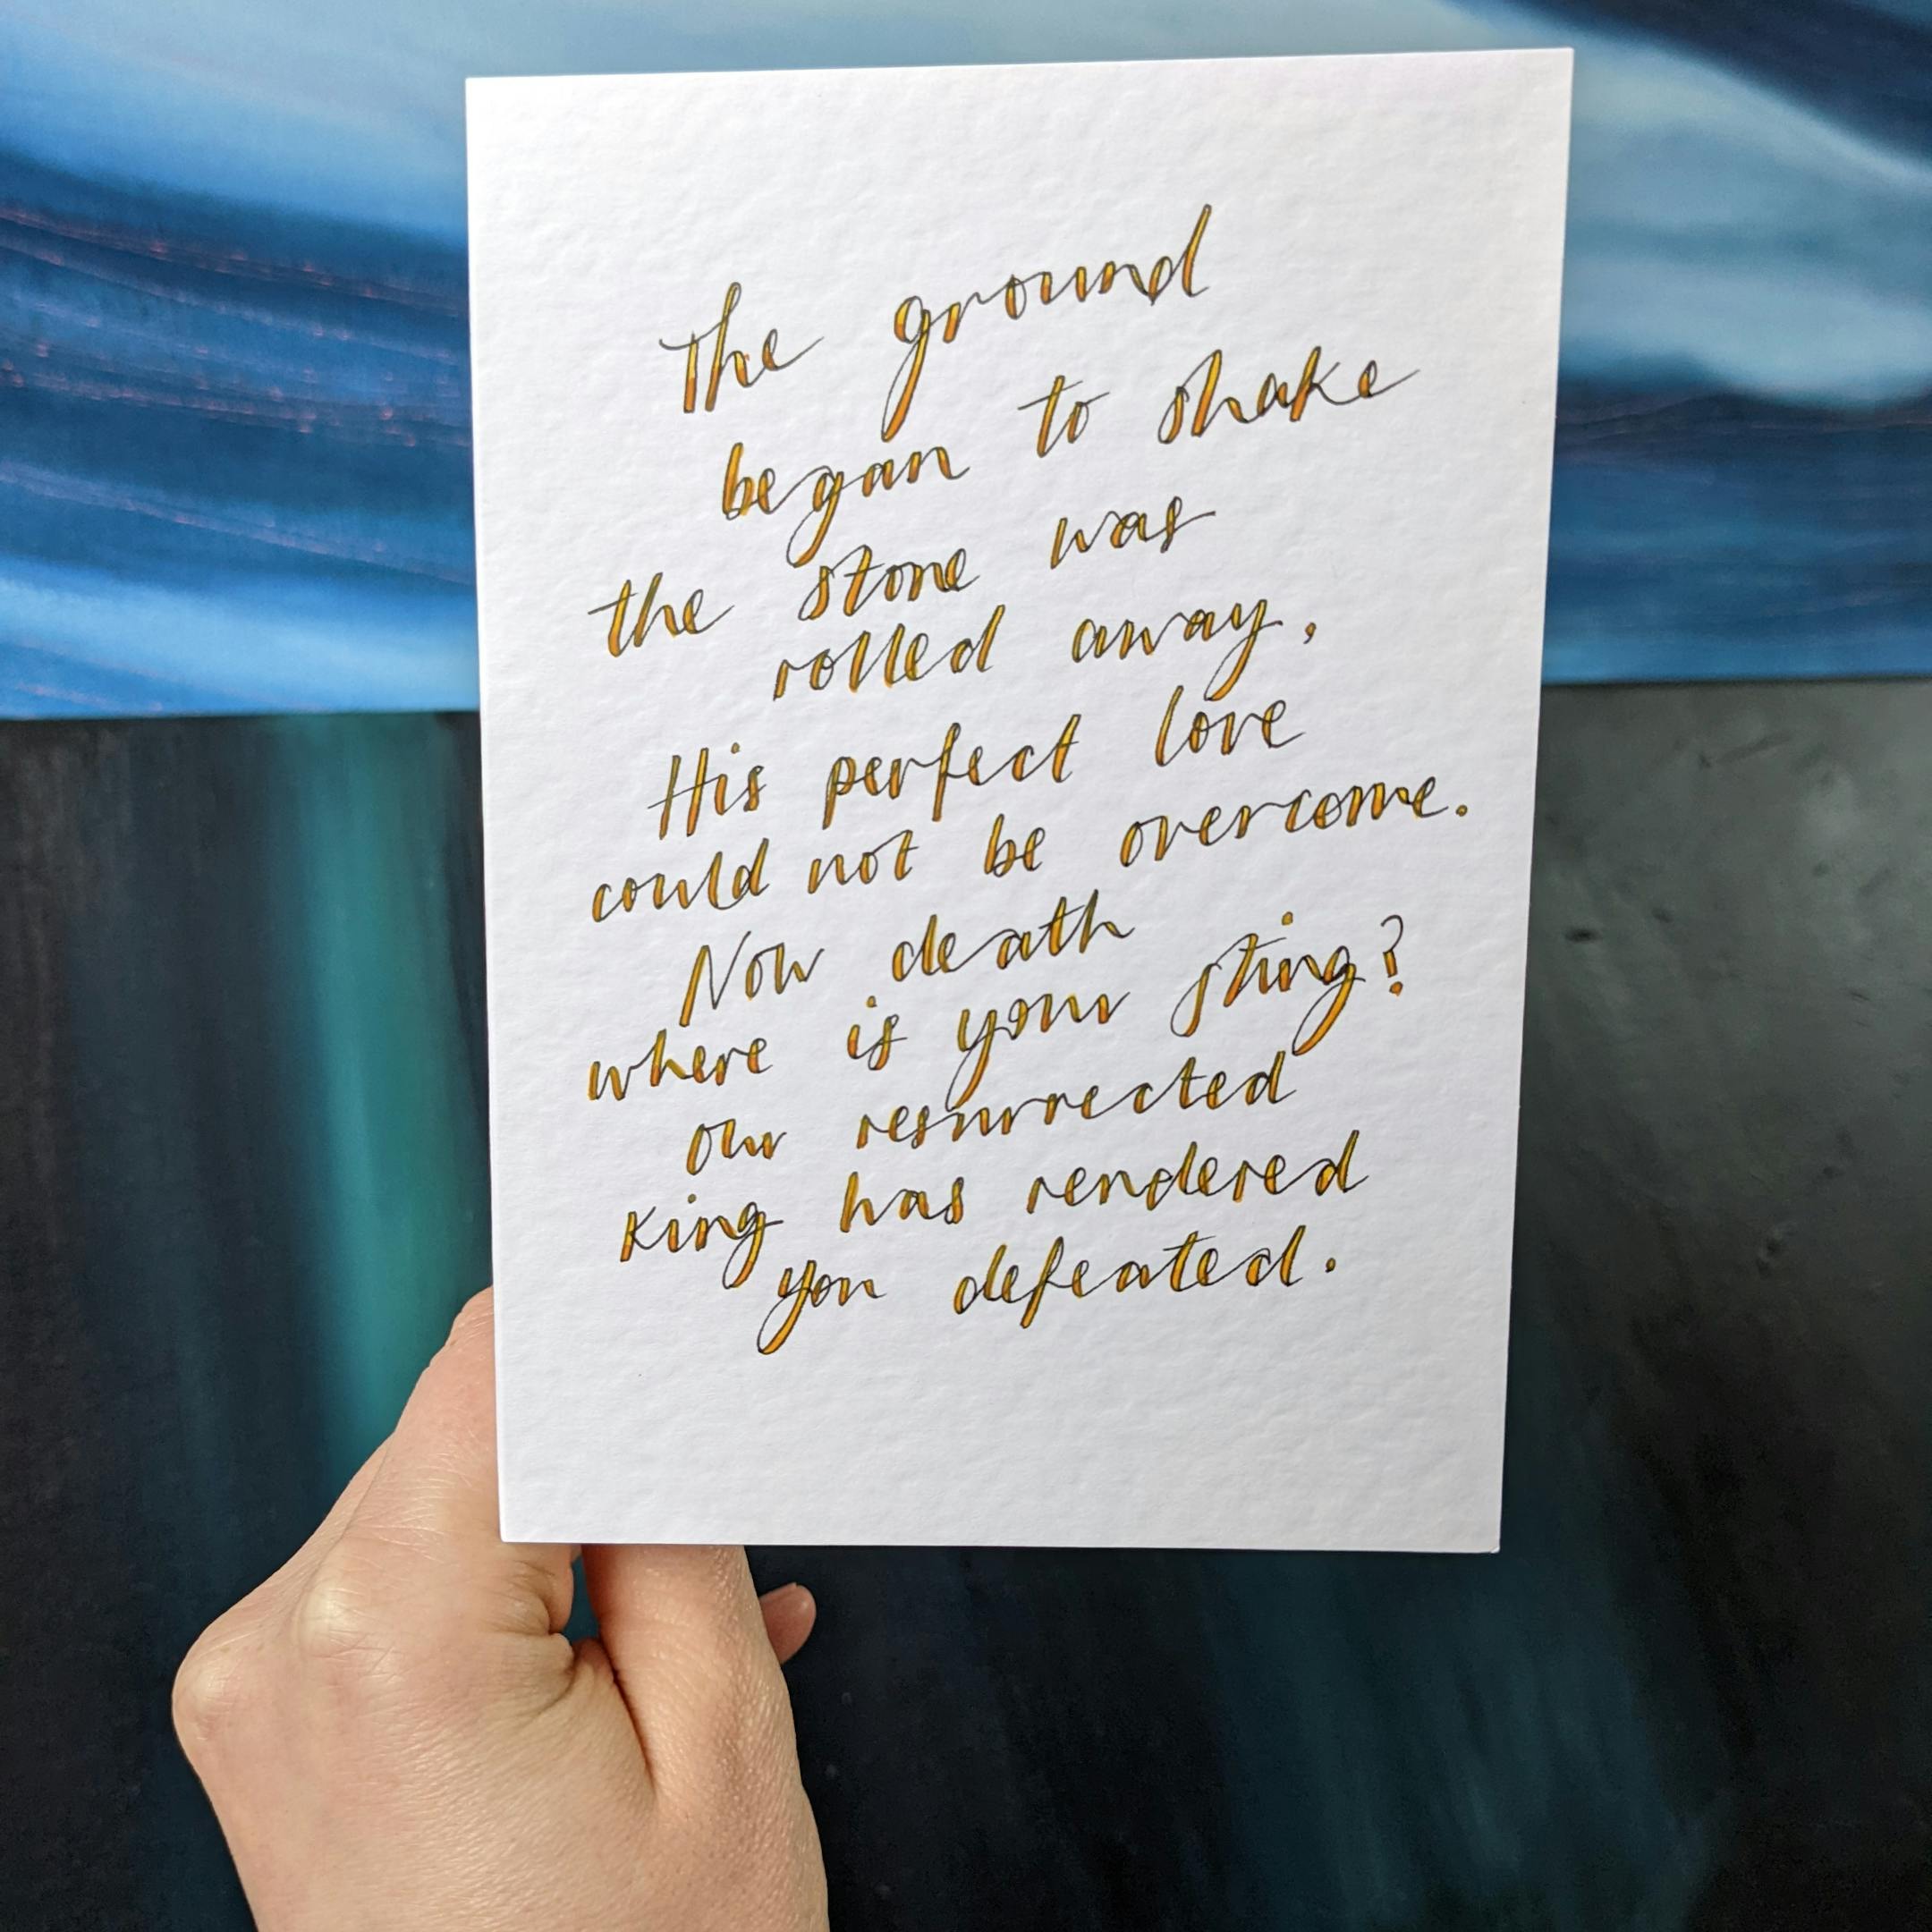 The ground
began to shake
the stone was
rolled away,
His perfect love
could not be overcome.
Now death
where is your sting?
our resurrected
King has rendered
you defeated.